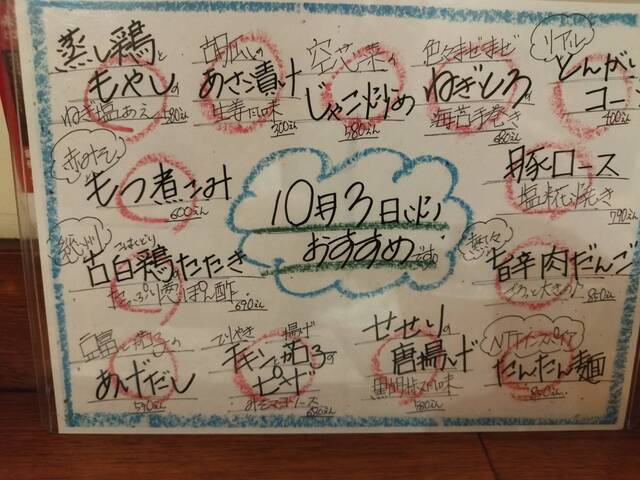 蒸し鶏と
もやしの
ねぎ塩あえ 580えん
胡瓜の
あさ漬け
生姜風味
300えん
空芯菜の
じゃこ炒め
580えん
色々まぜまぜ
ねぎとろの
海苔手巻き
680えん
リアル
とんがり
コーン
400えん
赤みそ
もつ煮こみ
600えん
10月3日(火)
おすすめです。
豚ロース
塩糀焼き
790えん
古白鶏のたたき
たっぷり葱ぽん酢
690えん
旨辛肉だんご
850えん
豆富と茄子の
あげだし
590えん
てりやき
チキンと揚げ茄子の
ピザ
せせりの
唐揚げ
580えん
たんたん麺
850えん